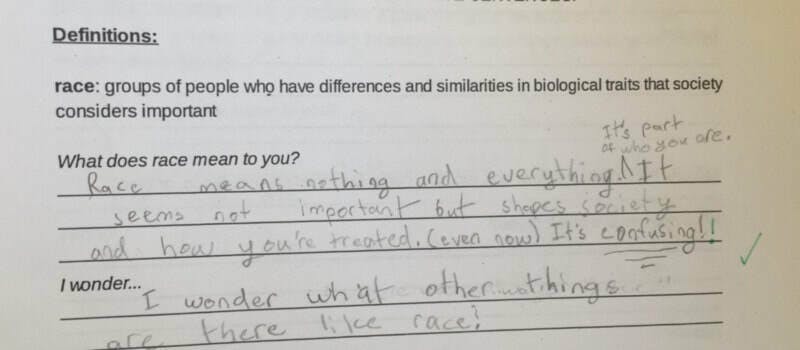 Definitions:
race: groups of people who have differences and similarities in biological traits that society
considers important
It's part
of who you are.
What does race mean to you?
Race means nothing and everything.^It
seems not important but shapes society
and how you're treated. (even now) It's confusing!!
I wonder...
I wonder what other things
are there like race?